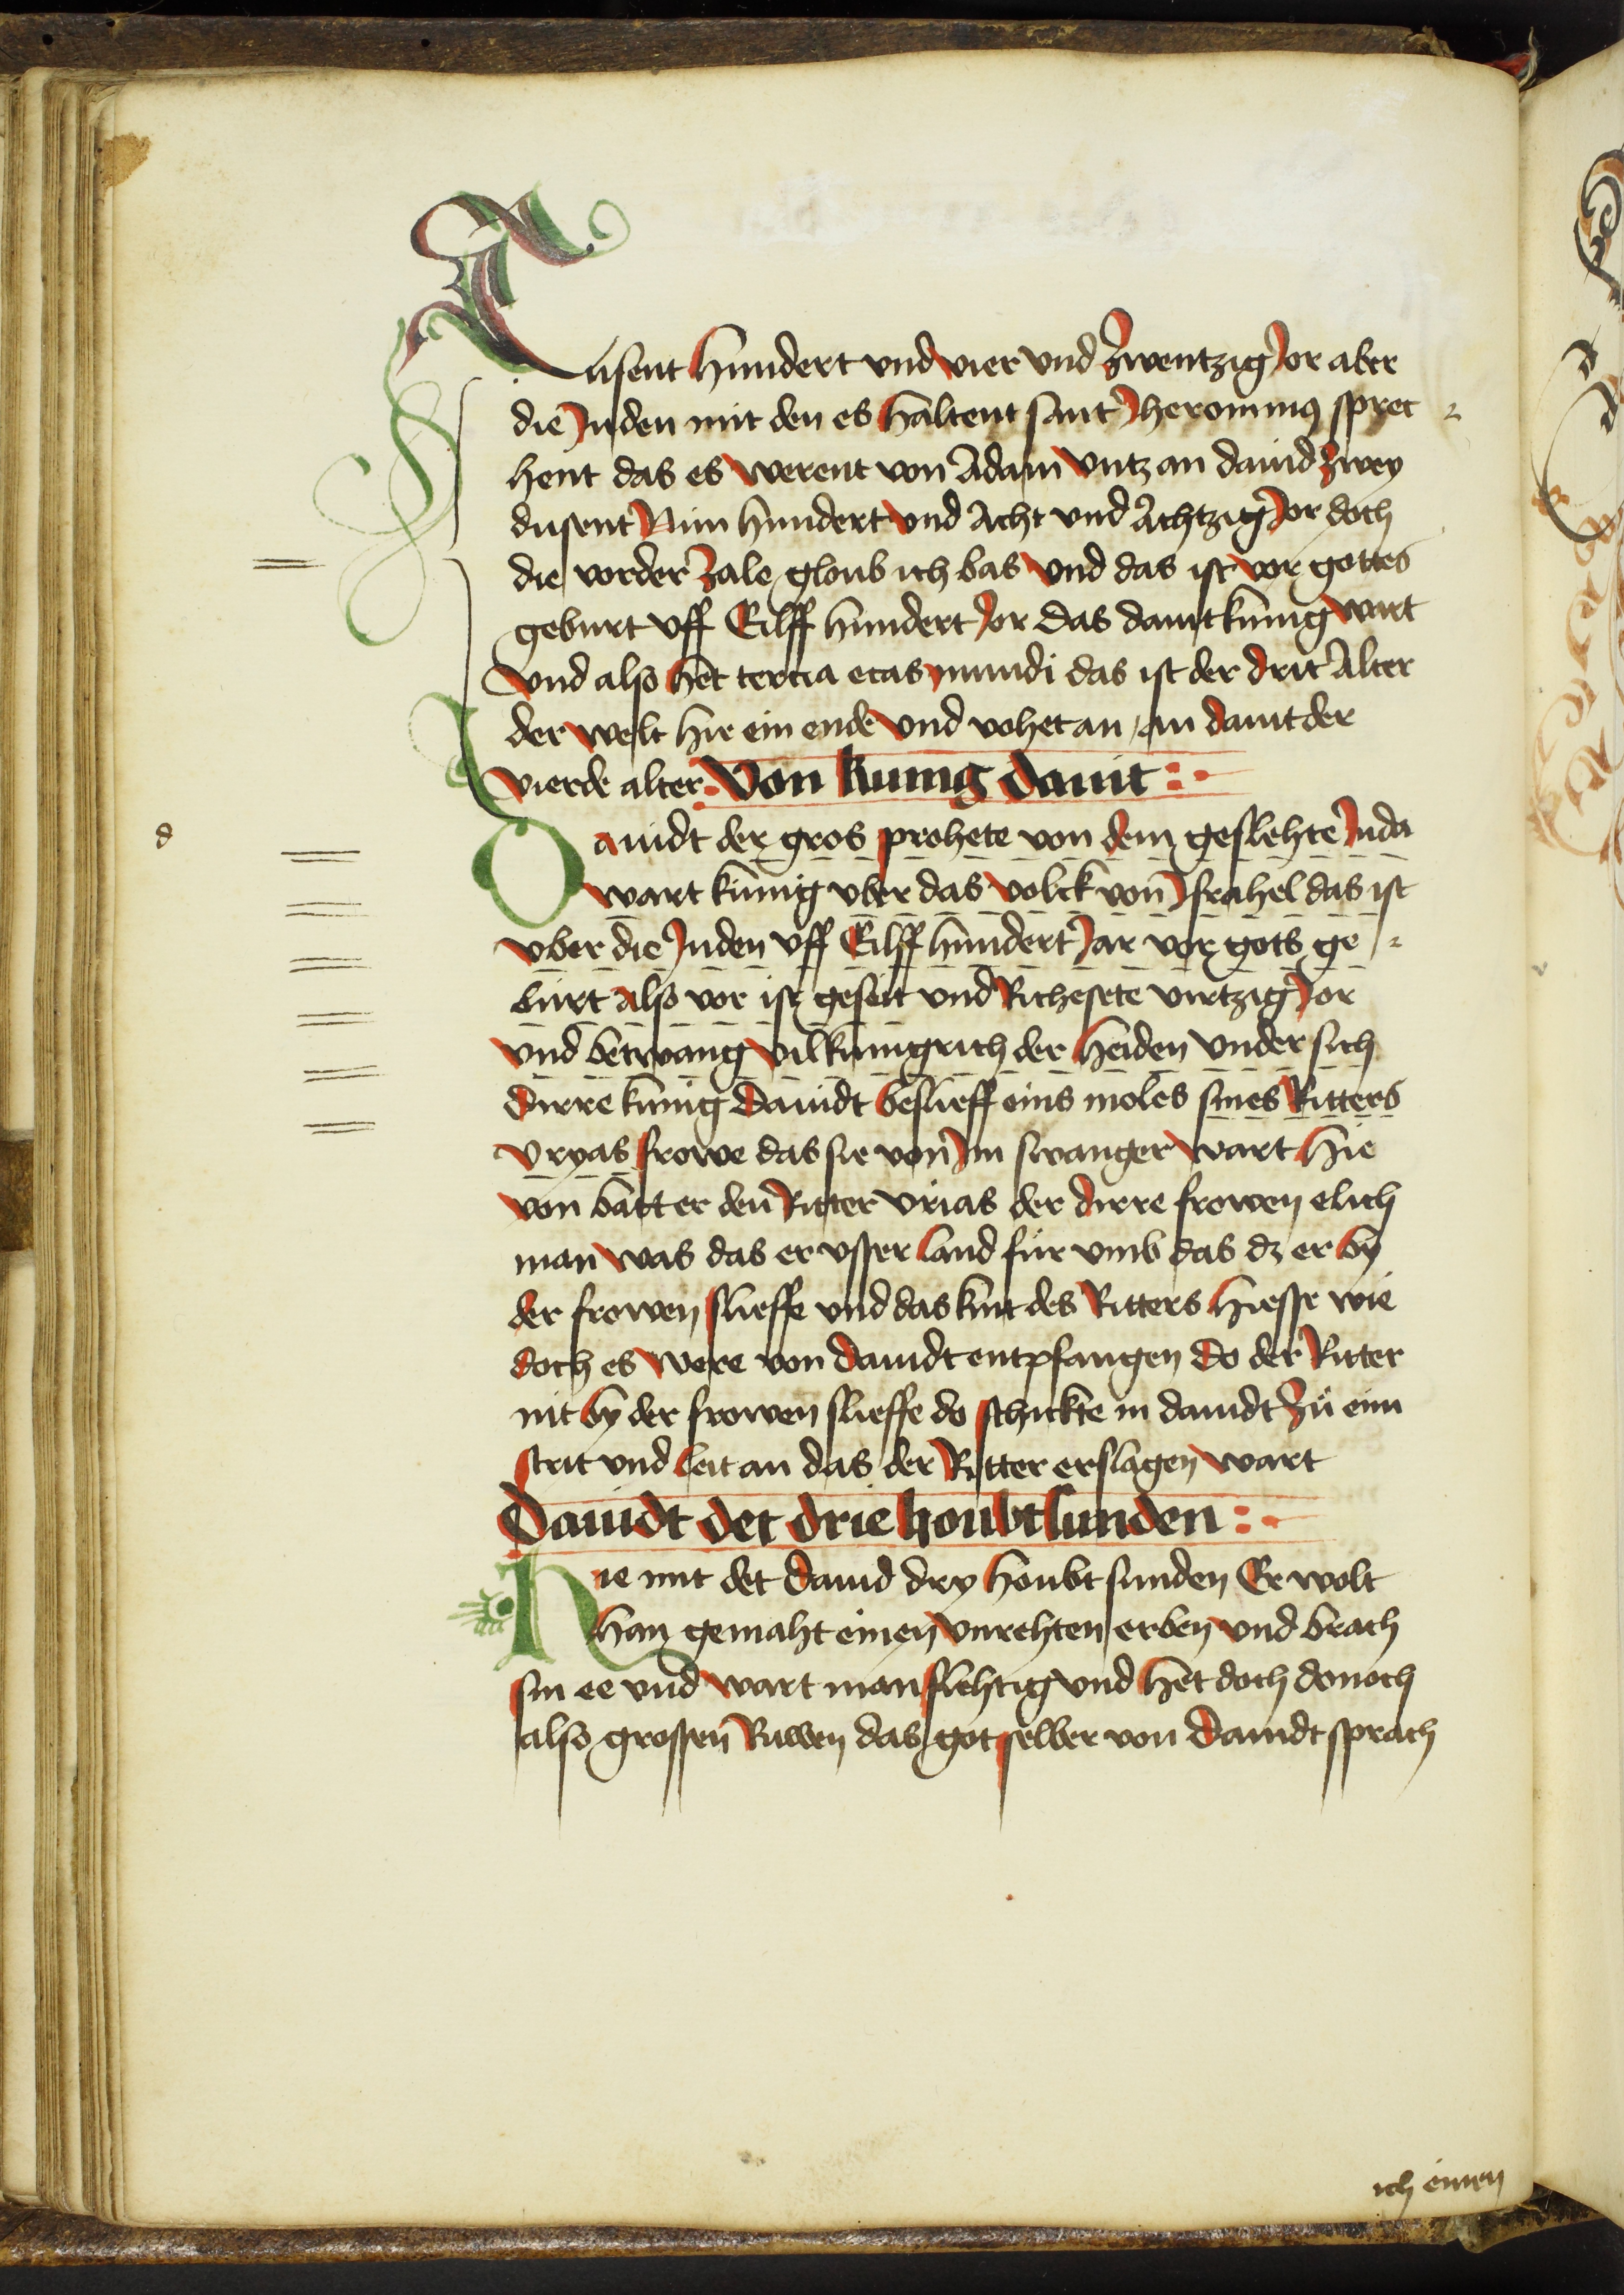 Tusent hundert vnd vier vnd zwentzig Jor aber
die Juden mit den es haltent sant Jheronimus sprec
hent das es werent von Adam vntz an dauid zwey
dusent Nün hundert vnd Acht vnd Achtzig Jor doch
die vorder zale gloub ich bas vnd das ist vor gottes
geburt vff Eilff hundert Jor das dauit künig wart
vnd also het tercia etas mundi das ist der drit Alter
der welt hie ein ende vnd vohet an / an dauit der
vierde alter Von kunig dauit
Dauidt der gros prohete von dem geslehte Juda
wart künig vber das volck von Jsrahel das ist
vber die Juden vff Eilff hundert Jar vor gots ge
burt also vor ist geseit vnd Richesete virtzig Jor
vnd betwang vil kunigrich der heiden vnder sich
dirre kunig Dauidt beslieff eins moles sines Ritters
vryas frowe das sie von Jm swanger wart hie
von batt er den Ritter vrias der dirre frowen elich
man was das er vsser land für vmb das dz er by
der frowen slieffe vnd das kint des Ritters hiesse wie
doch es were von dauidt entpfangen do der Ritter
nit by der frowen slieffe do schickte in dauidt zů eim
strit vnd leit an das der Ritter erslagen wart
Dauidt det drie houbtsunden
Hie mit det dauid dry houbt sunden Er wolt
han gemaht einen vnrehten erben vnd brach
sin ee vnd wart manslehtig vnd het doch donoch
also grossen Ruwen das got selber von Dauidt sprach
ich einen
d